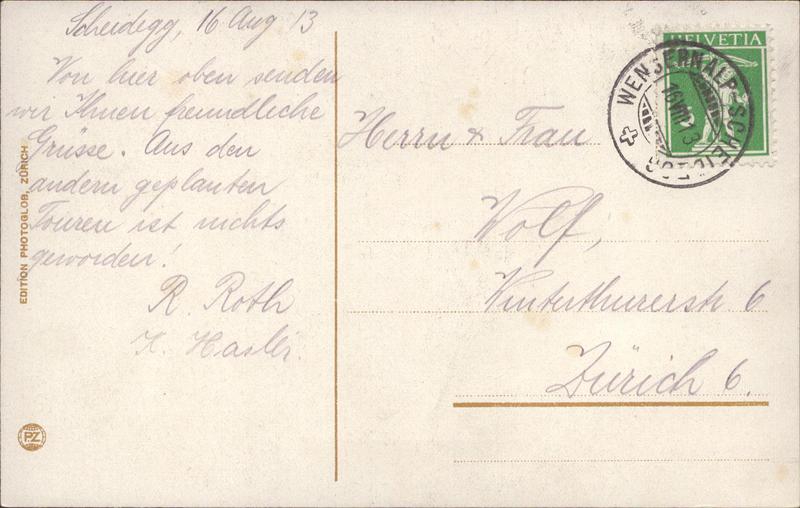 Scheidegg, 16 Aug 13
Von hier oben senden
wir Ihnen freundliche
Grüsse. Aus den
andern geplanten
Touren ist nichts
geworden!
R. Roth
K. Hasler.
EDITION PHOTOGLOB, ZÜRICH
PZ
HELVETIA
WENGERNALP-SCHEIDEGG
16 VIII 13
Herrn & Frau
Wolf,
Winterthurerstr 6
Zürich 6.